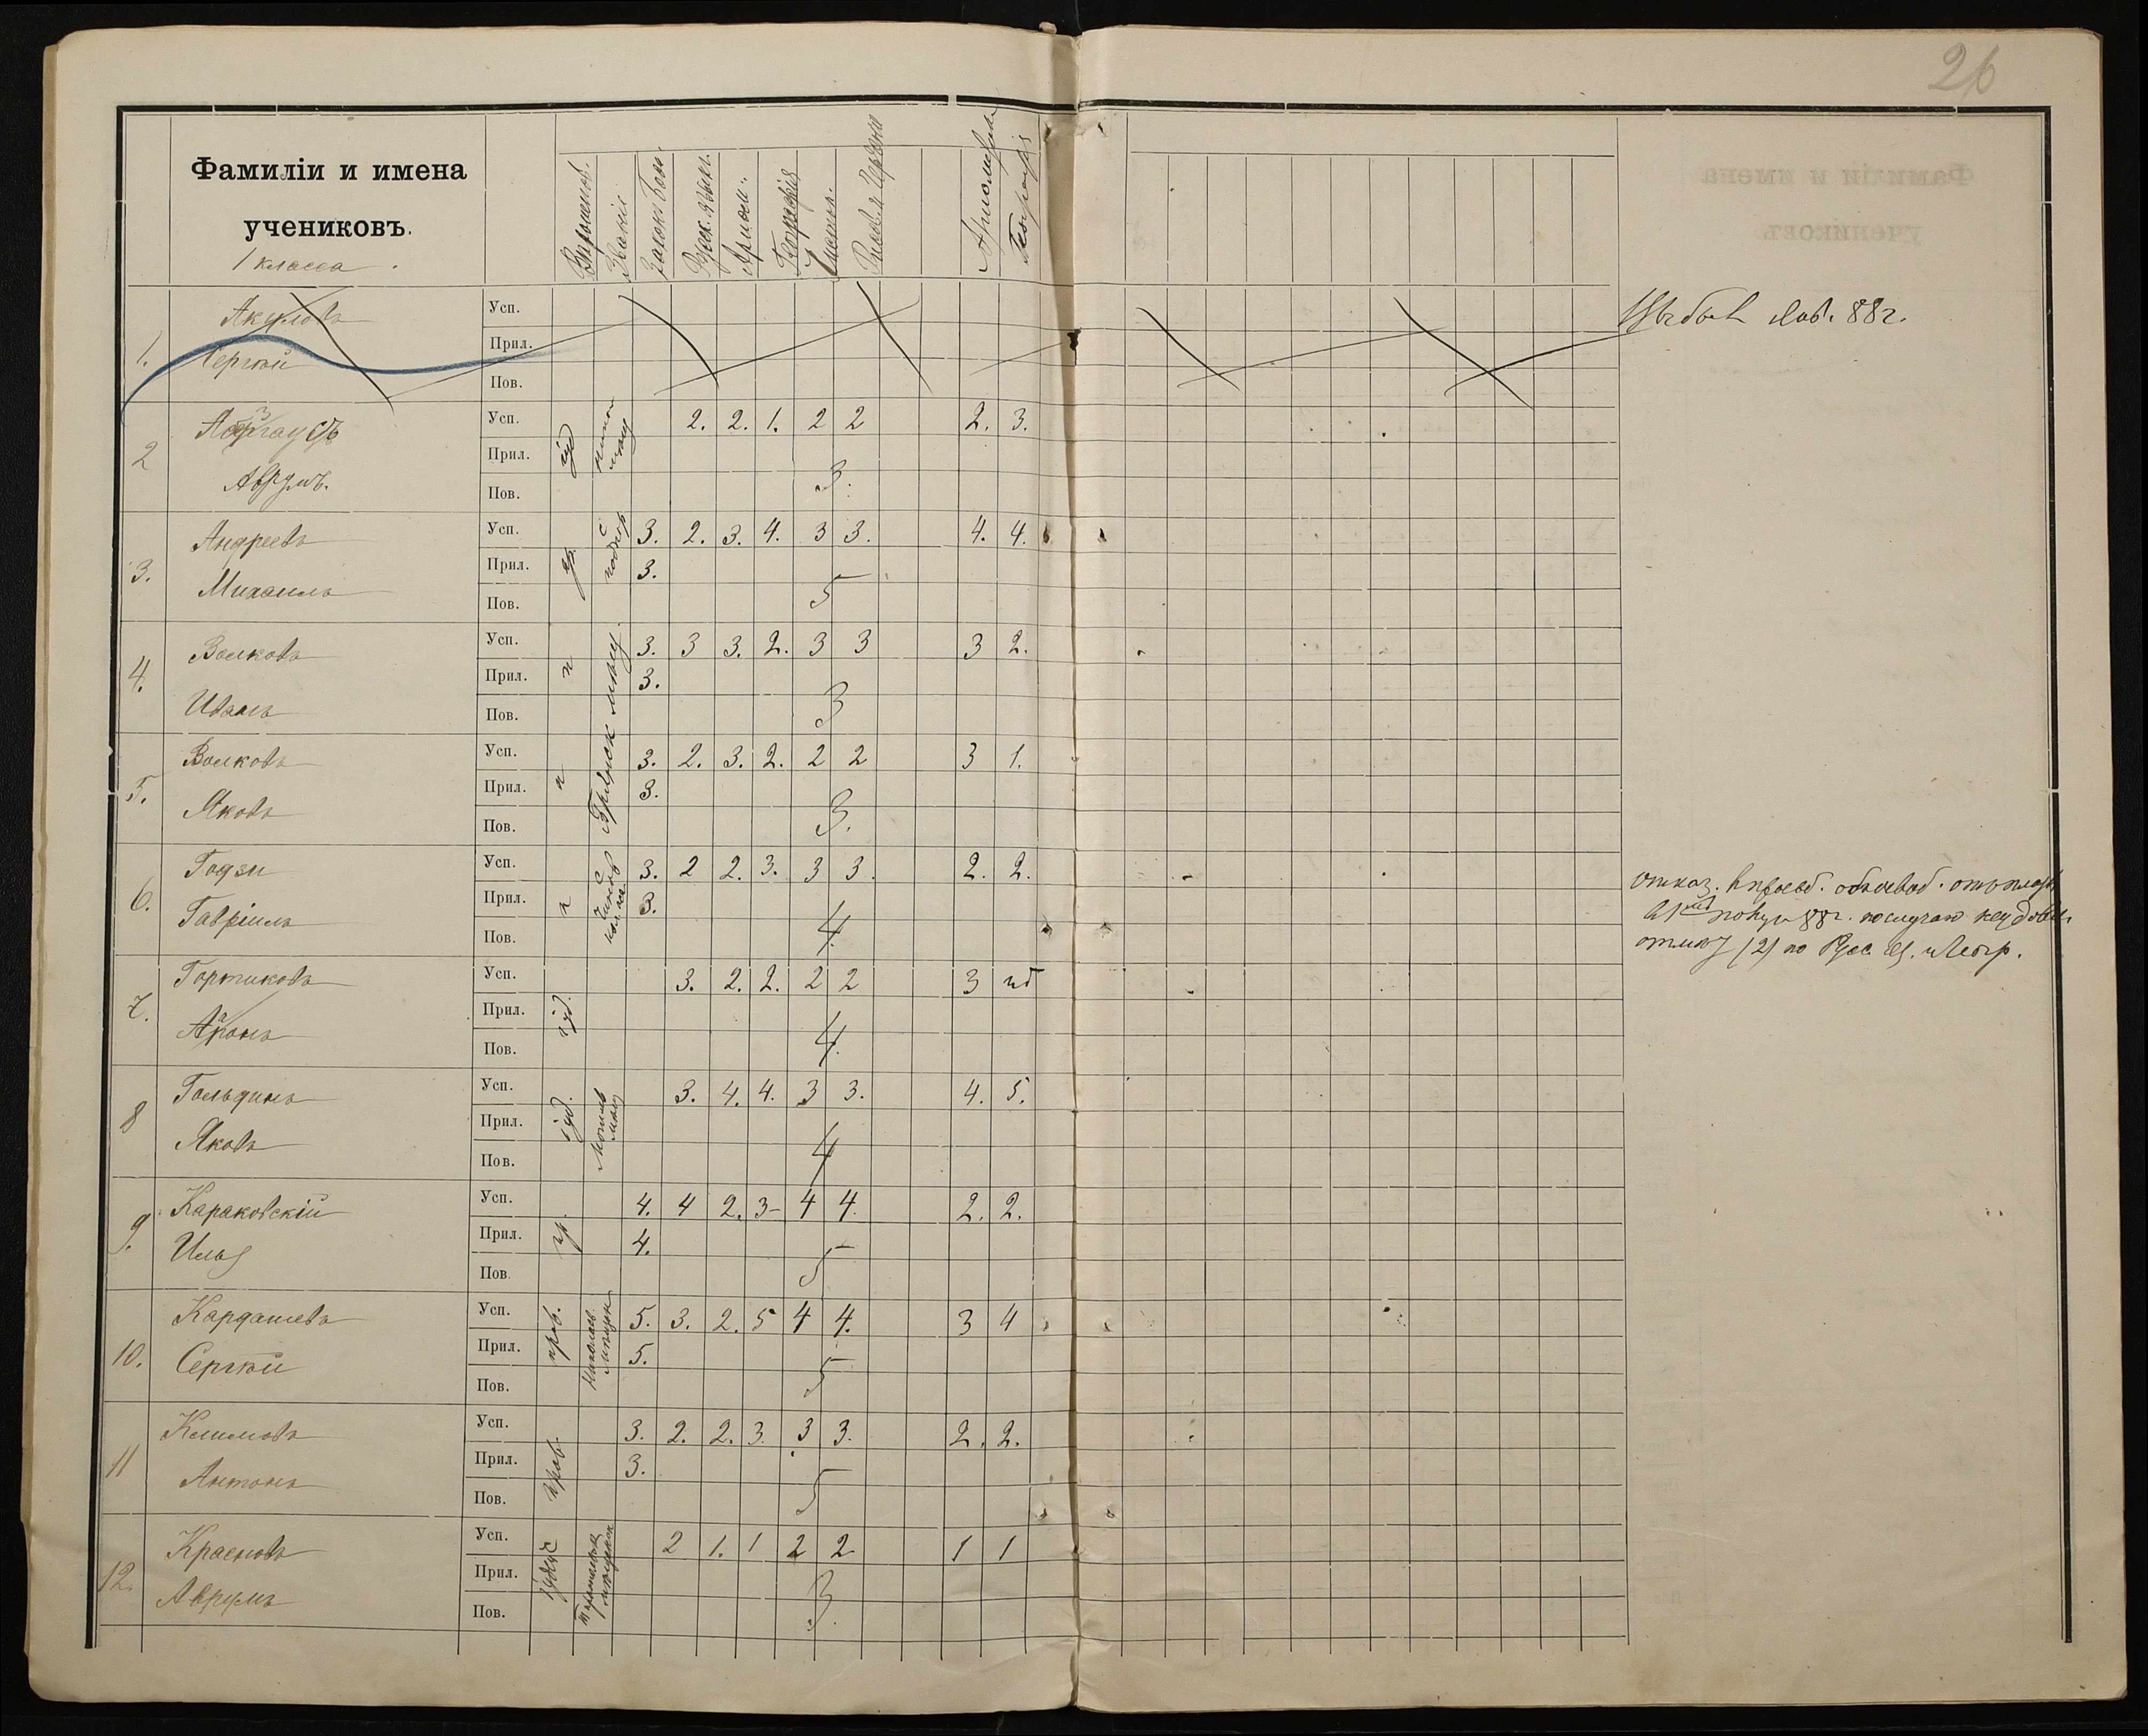 26
Фамиліи и имена
учениковъ.
1 класса.
Законъ Бож.
Русск. языкъ.
Ариѳм.
Географія
Чистоп.
Ариѳметика
Географія
1. Акуловъ
Сергѣй
Усп.
Прил.
Пов.
Выбылъ 88 г.
2
Аврумъ.
Усп. 2. 2. 1. 2 2 2. 3.
Прил. іуд
Пов. 3.
3. Андреевъ
Михаилъ
Усп. 3. 2. 3. 4. 3 3. 4. 4.
Прил. пр. 3.
Пов. 5
4. Волковъ
Иванъ
Усп. 3. 3 3. 2. 3 3 3 2.
Прил. 3.
Пов. 3
5. Волковъ
Яковъ
Усп. 3. 2. 3. 2. 2 2 3 1.
Прил. 3.
Пов. 3.
6. Годзи
Гавріилъ
Усп. 3. 2 2. 3. 3 3. 2. 2.
Прил. 3.
Пов. 4.
отказ.
88 г. по случаю
(2) по Рус. яз.
7. Гортиковъ
Аронъ
Усп. 3. 2. 2. 2 2 3
Прил. іуд.
Пов. 4.
8 Гольдинъ
Яковъ
Усп. 3. 4. 4. 3 3. 4. 5.
Прил. іуд.
Пов. 4
9. Караковскій
Илья
Усп. 4. 4 2. 3- 4 4. 2. 2.
Прил. пр. 4.
Пов 5
10. Кардашевъ
Сергѣй
Усп. 5. 3. 2. 5 4 4. 3 4
Прил. прав. 5.
Пов. 5
11 Климовъ
Антонъ
Усп. 3. 2. 2. 3. 3 3. 2. 2.
Прил. прав. 3.
Пов. 5
12. Красновъ
Аврумъ
Усп. 2 1. 1 2 2 1 1
Прил.
Пов. 3.